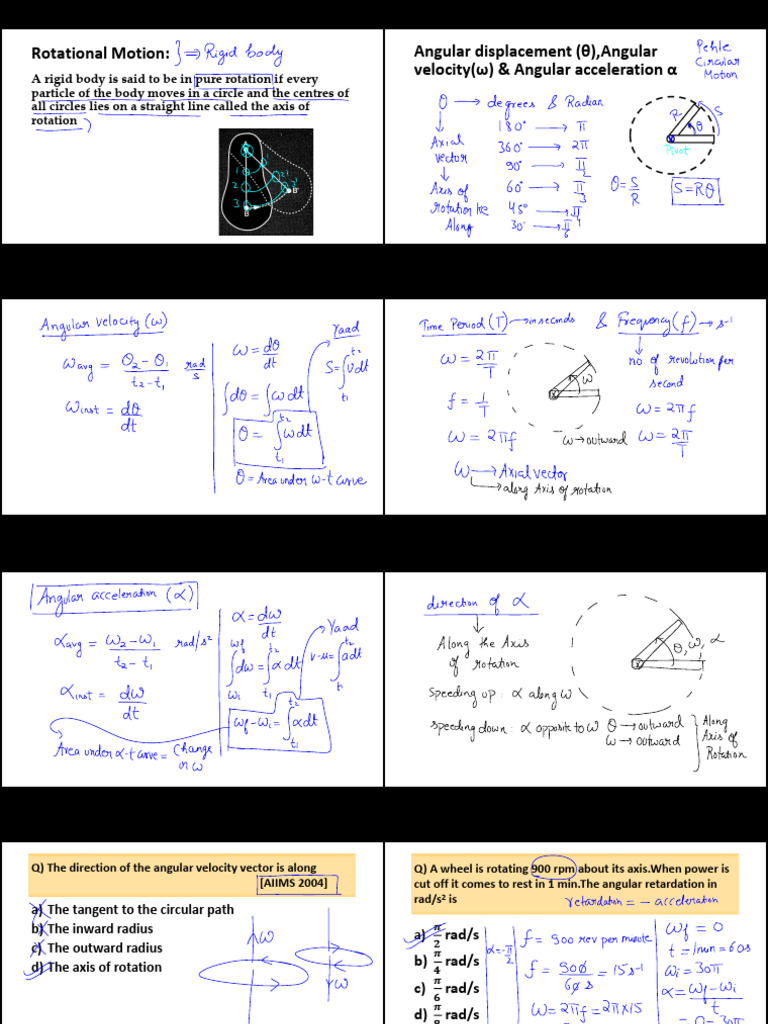 Rotational Motion: } ⇒ Rigid body
A rigid body is said to be in pure rotation if every
particle of the body moves in a circle and the centres of
all circles lies on a straight line called the axis of
rotation
1
2
3
2'
B'
B
Angular displacement (θ),Angular
velocity(ω) & Angular acceleration α
Pehle
Circular
Motion
θ → degrees & Radian
↓
Axial
vector
↓
Axis of
rotation ke
Along
180° → π
360° → 2π
90° → π/2
60° → π/3
45° → π/4
30° → π/6
R
S
θ
Pivot
θ = S/R
S = Rθ
Angular velocity (ω)
ωavg = θ2 - θ1 / t2 - t1 rad/s
ωinst = dθ/dt
ω = dθ/dt
∫dθ = ∫ω dt
θ = ∫ωdt
t2
t1
θ = Area under ω-t curve
Yaad
S = ∫vdt
t2
t1
Time Period (T) → in seconds & Frequency (f) → s⁻¹
ω = 2π/T
f = 1/T
ω = 2πf
ω
ω → outward
no of revolution per
second
ω = 2πf
ω = 2π/T
ω → Axial vector
→ along Axis of rotation
Angular acceleration (α)
αavg = ω2 - ω1 / t2 - t1 rad/s²
αinst = dω/dt
Area under α-t curve = Change
in ω
α = dω/dt
ωf t2
∫dω = ∫α dt
ωi t1
t2
ωf - ωi = ∫αdt
t1
Yaad
t2
v-u = ∫adt
t1
direction of α
↓
Along the Axis
of rotation
θ, ω, α
Speeding up : α along ω
Speeding down : α opposite to ω
θ → outward
ω → outward
} Along
Axis of
Rotation
Q) The direction of the angular velocity vector is along
[AIIMS 2004]
a) The tangent to the circular path
b) The inward radius
c) The outward radius
d) The axis of rotation
ω
ω
Q) A wheel is rotating 900 rpm about its axis.When power is
cut off it comes to rest in 1 min.The angular retardation in
rad/s² is
retardation = - acceleration
a) π/2 rad/s
b) π/4 rad/s
c) π/6 rad/s
d) π/8 rad/s
α = -π/2
f = 900 rev per minute
f = 900/60 s = 15 s⁻¹
ω = 2πf = 2π×15
ωf = 0
t = 1min = 60s
ωi = 30π
α = ωf - ωi / t
= 0 - 30π